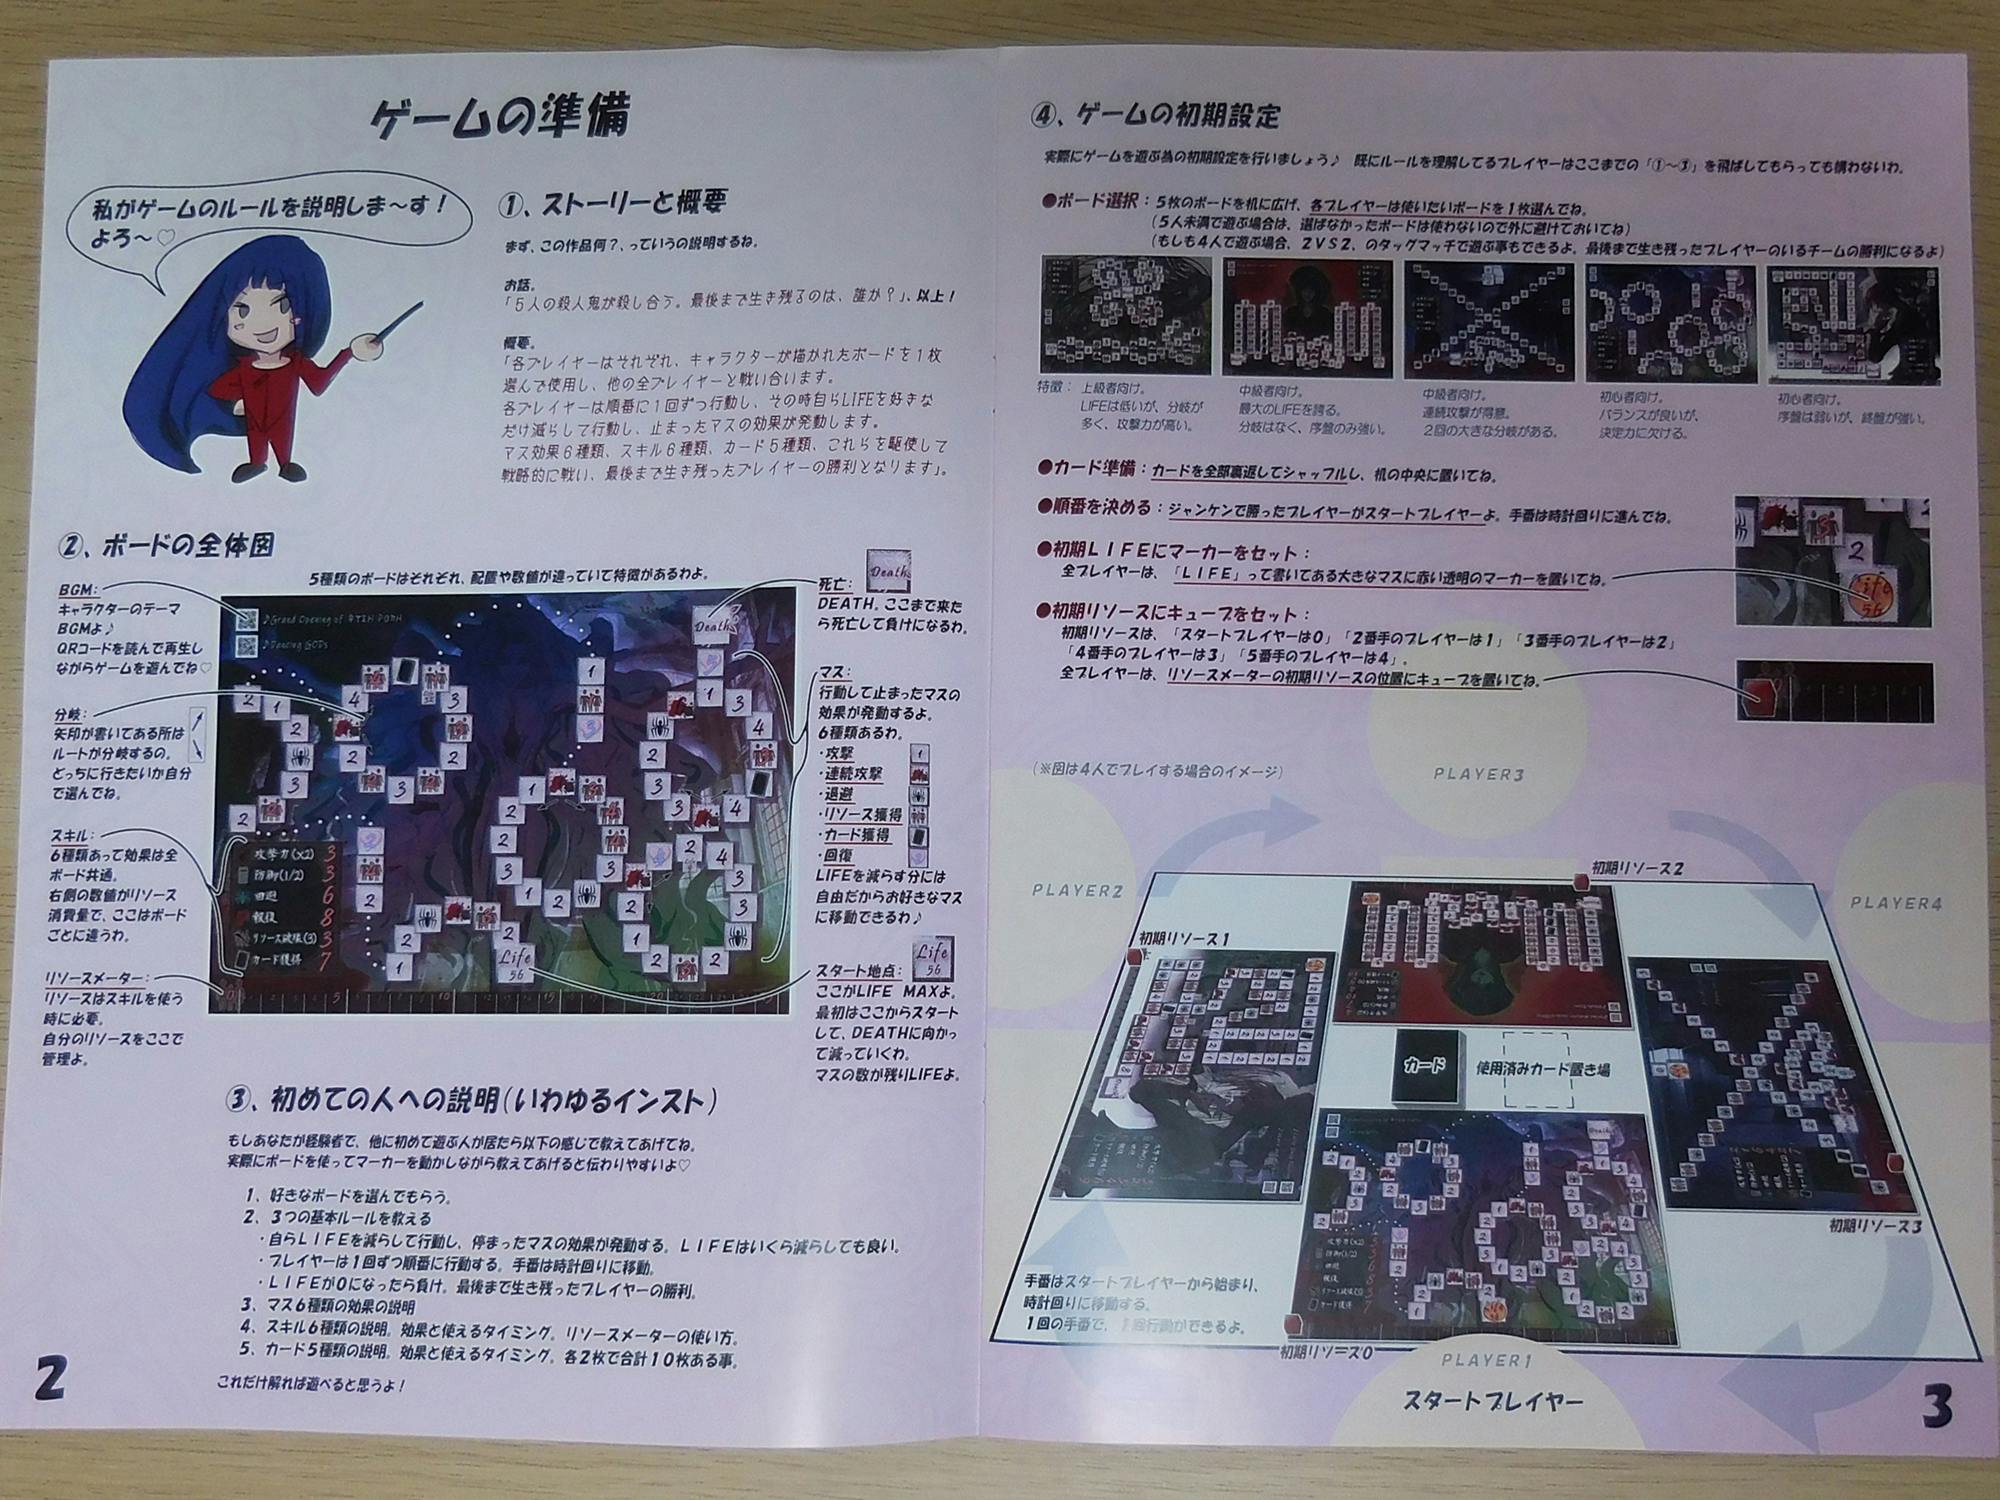 ゲームの準備
私がゲームのルールを説明しま〜す！
よろ〜♡
①、ストーリーと概要
まず、この作品何？、っていうの説明するね。
お話。
「５人の殺人鬼が殺し合う。最後まで生き残るのは、誰か？」、以上！
概要。
「各プレイヤーはそれぞれ、キャラクターが描かれたボードを１枚
選んで使用し、他の全プレイヤーと戦い合います。
各プレイヤーは順番に１回ずつ行動し、その時自らLIFEを好きな
だけ減らして行動し、止まったマスの効果が発動します。
マス効果６種類、スキル６種類、カード５種類、これらを駆使して
戦略的に戦い、最後まで生き残ったプレイヤーの勝利となります」。
②、ボードの全体図
5種類のボードはそれぞれ、配置や数値が違っていて特徴があるわよ。
BGM：
キャラクターのテーマ
BGMよ♪
QRコードを読んで再生し
ながらゲームを遊んでね♡
分岐：
矢印が書いてある所は
ルートが分岐するの。
どっちに行きたいか自分
で選んでね。
スキル：
6種類あって効果は全
ボード共通。
右側の数値がリソース
消費量で、ここはボード
ごとに違うわ。
リソースメーター：
リソースはスキルを使う
時に必要。
自分のリソースをここで
管理よ。
♪Dancing GODs
攻撃力(x2) 3
防御(1/2) 3
回避 6
報復 8
リソース破壊(3) 3
カード獲得 7
Death
Life
56
死亡：
Death
DEATH。ここまで来た
ら死亡して負けになるわ。
マス：
行動して止まったマスの
効果が発動するよ。
6種類あるわ。
・攻撃
・連続攻撃
・退避
・リソース獲得
・カード獲得
・回復
LIFEを減らす分には
自由だからお好きなマス
に移動できるわ♪
スタート地点：
Life
56
ここがLIFE MAXよ。
最初はここからスタート
して、DEATHに向かっ
て減っていくわ。
マスの数が残りLIFEよ。
③、初めての人への説明(いわゆるインスト)
もしあなたが経験者で、他に初めて遊ぶ人が居たら以下の感じで教えてあげてね。
実際にボードを使ってマーカーを動かしながら教えてあげると伝わりやすいよ♡
1、好きなボードを選んでもらう。
2、3つの基本ルールを教える
・自らＬＩＦＥを減らして行動し、停まったマスの効果が発動する。ＬＩＦＥはいくら減らしても良い。
・プレイヤーは１回ずつ順番に行動する。手番は時計回りに移動。
・ＬＩＦＥが０になったら負け。最後まで生き残ったプレイヤーの勝利。
3、マス6種類の効果の説明
4、スキル6種類の説明。効果と使えるタイミング。リソースメーターの使い方。
5、カード5種類の説明。効果と使えるタイミング。各2枚で合計10枚ある事。
これだけ解れば遊べると思うよ！
2
④、ゲームの初期設定
実際にゲームを遊ぶ為の初期設定を行いましょう♪　既にルールを理解してるプレイヤーはここまでの「①〜③」を飛ばしてもらっても構わないわ。
●ボード選択：５枚のボードを机に広げ、各プレイヤーは使いたいボードを１枚選んでね。
（５人未満で遊ぶ場合は、選ばなかったボードは使わないので外に避けておいてね）
（もしも４人で遊ぶ場合、２ＶＳ２、のタッグマッチで遊ぶ事もできるよ。最後まで生き残ったプレイヤーのいるチームの勝利になるよ）
特徴：
上級者向け。
LIFEは低いが、分岐が
多く、攻撃力が高い。
中級者向け。
最大のLIFEを誇る。
分岐はなく、序盤のみ強い。
中級者向け。
連続攻撃が得意。
２回の大きな分岐がある。
初心者向け。
バランスが良いが、
決定力に欠ける。
初心者向け。
序盤は弱いが、終盤が強い。
●カード準備：カードを全部裏返してシャッフルし、机の中央に置いてね。
●順番を決める：ジャンケンで勝ったプレイヤーがスタートプレイヤーよ。手番は時計回りに進んでね。
●初期ＬＩＦＥにマーカーをセット：
全プレイヤーは、「ＬＩＦＥ」って書いてある大きなマスに赤い透明のマーカーを置いてね。
2
Life
56
●初期リソースにキューブをセット：
初期リソースは、「スタートプレイヤーは0」「2番手のプレイヤーは1」「3番手のプレイヤーは2」
「4番手のプレイヤーは3」「5番手のプレイヤーは4」。
全プレイヤーは、リソースメーターの初期リソースの位置にキューブを置いてね。
（※図は４人でプレイする場合のイメージ）
PLAYER3
PLAYER2
PLAYER4
初期リソース2
初期リソース1
カード
使用済みカード置き場
初期リソース3
手番はスタートプレイヤーから始まり、
時計回りに移動する。
１回の手番で、１回行動ができるよ。
初期リソース0
PLAYER1
スタートプレイヤー
3